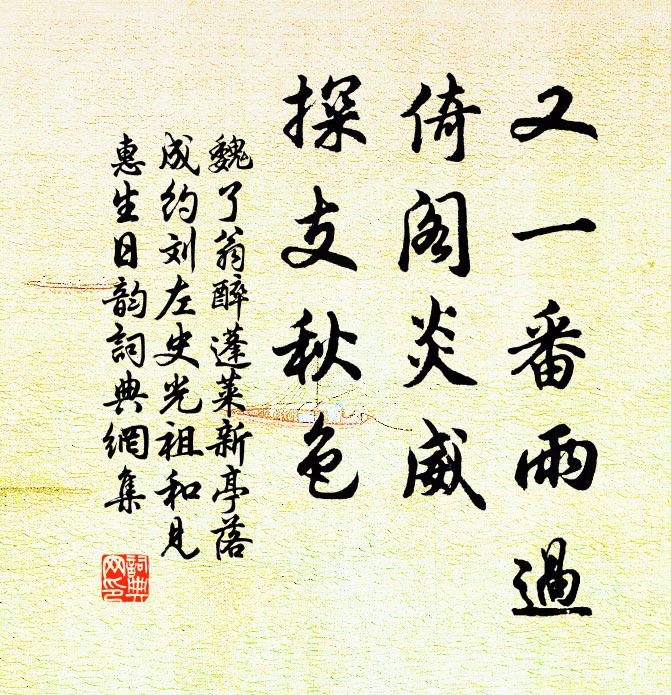 又一番雨過
倚阁炎威
探支秋色
魏了翁醉蓬莱新亭落
成约刘左史光祖和見
惠生日韵詞典網集
詞典
网印